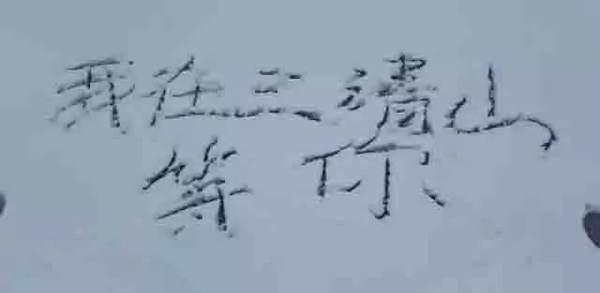 我在三清山
等你